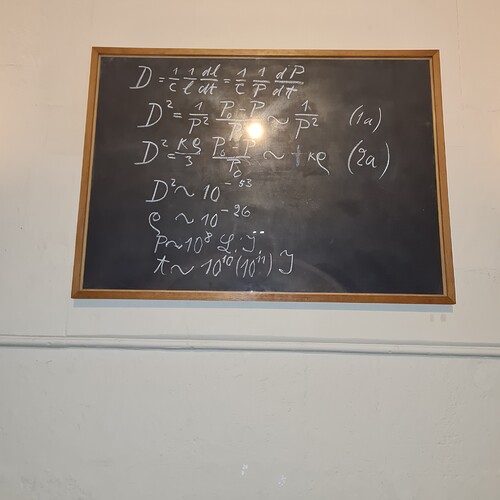 D = 1/c 1/l dl/dt = 1/c 1/P dP/dt
D² = 1/P² P₀-P/P₀ ~ 1/P² (1a)
D² = κρ/3 P₀-P/P₀ ~ κρ (2a)
D² ~ 10⁻⁵³
ρ ~ 10⁻²⁶
P ~ 10⁸ L. J.
t ~ 10¹⁰(10¹¹) J